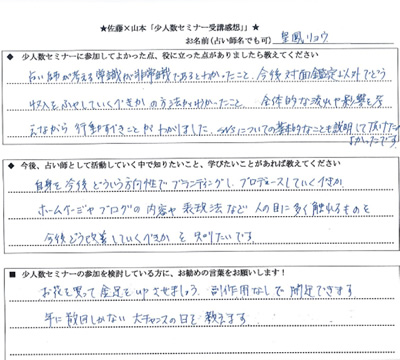 ★佐藤×山本「少人数セミナー受講感想」」★
お名前(占い師名でも可) 皇鳳リョウ
◆ 少人数セミナーに参加してよかった点、役に立った点がありましたら教えてください
占い師が考える常識が非常識であるとわかったこと、今後対面鑑定以外でどう
収入をふやしていくべきかの方法がわかったこと、全体的な流れや影響を考
えながら行動すべきことがわかりました。SNSについての基本的なことを説明して頂けたの
よかったです
◆ 今後、占い師として活動していく中で知りたいこと、学びたいことがあれば教えてください
自身を今後どういう方向性でブランディングし、プロデュースしていくべきか、
ホームページやブログの内容や表現法など人の目に多く触れるものを
今後どう改善していくべきかを知りたいです。
■ 少人数セミナーの参加を検討している方に、お勧めの言葉をお願いします!
お花を買って金運をUPさせましょう 副作用なしで開運できます
年に数回しかない大チャンスの日を教えます